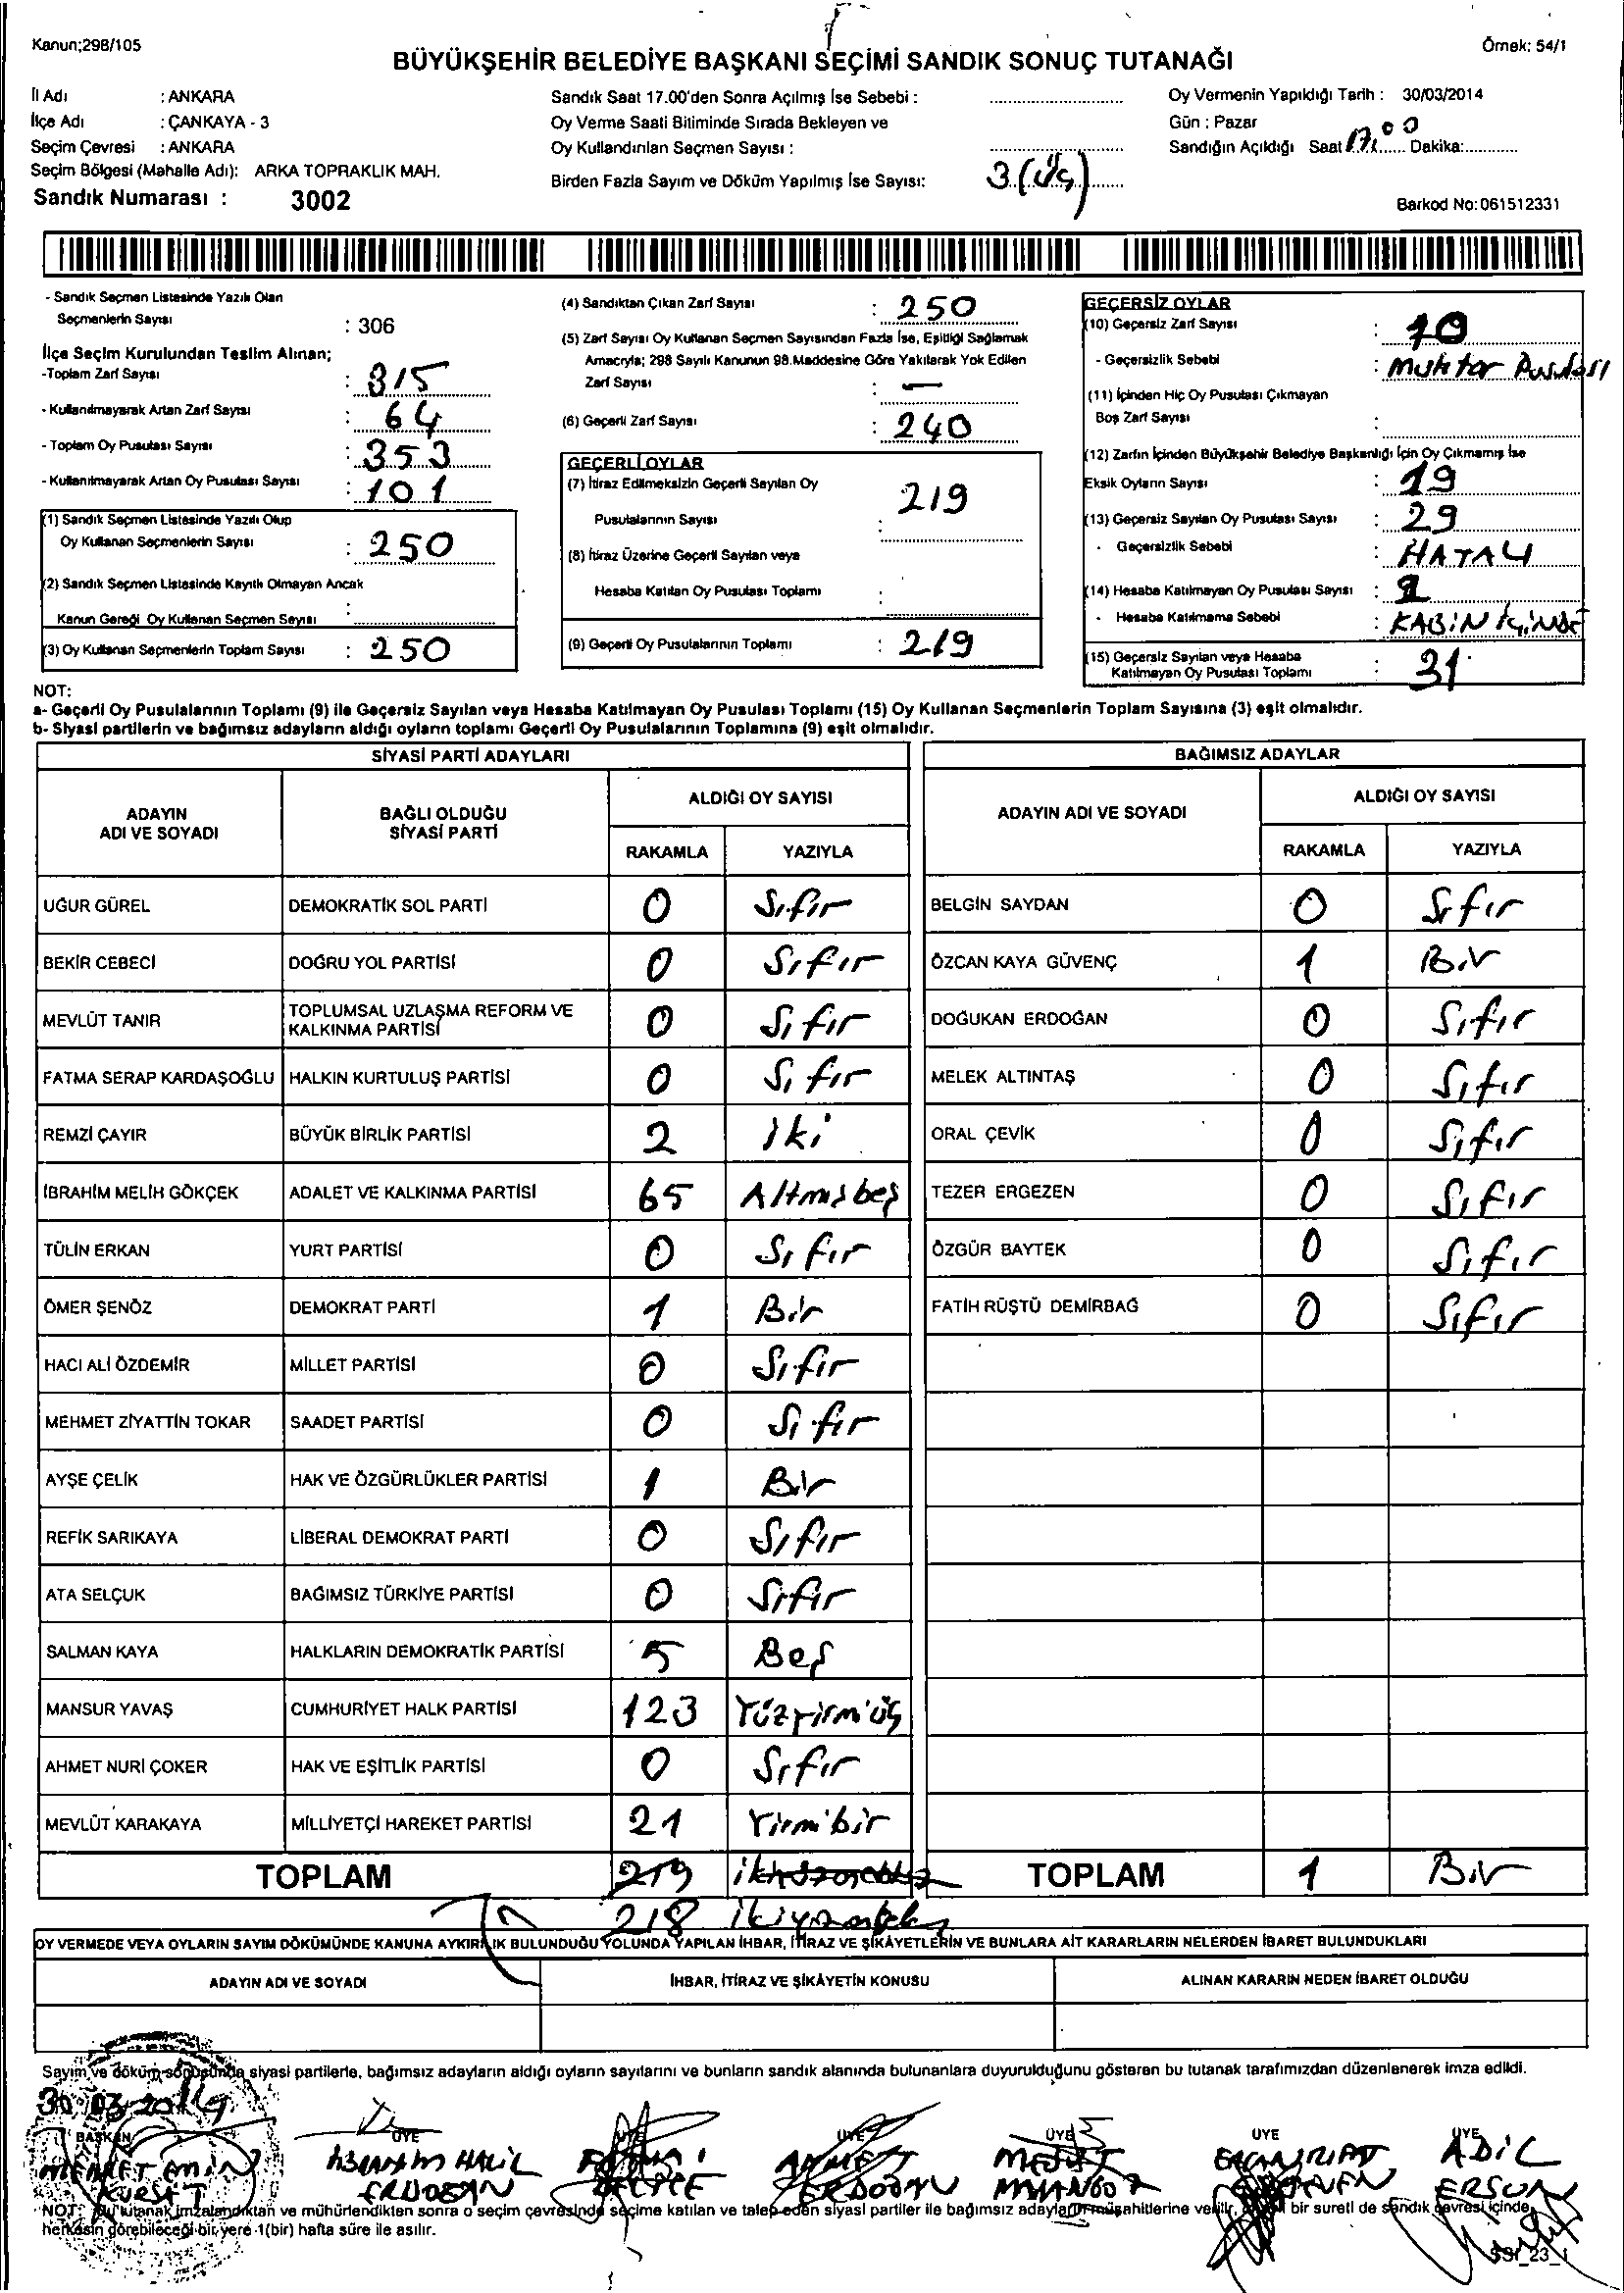 Kanun;298/105
Örnek: 54/1
BÜYÜKŞEHİR BELEDİYE BAŞKANI SEÇİMİ SANDIK SONUÇ TUTANAĞI
İl Adı : ANKARA
İlçe Adı : ÇANKAYA - 3
Seçim Çevresi : ANKARA
Seçim Bölgesi (Mahalle Adı): ARKA TOPRAKLIK MAH.
Sandık Numarası : 3002
Sandık Saat 17.00'den Sonra Açılmış İse Sebebi :
Oy Verme Saati Bitiminde Sırada Bekleyen ve
Oy Kullandırılan Seçmen Sayısı :
Birden Fazla Sayım ve Döküm Yapılmış İse Sayısı: 3 (üç)
Oy Vermenin Yapıldığı Tarih : 30/03/2014
Gün : Pazar
Sandığın Açıldığı Saat 17.00 Dakika:
Barkod No:061512331
- Sandık Seçmen Listesinde Yazılı Olan
Seçmenlerin Sayısı : 306
İlçe Seçim Kurulundan Teslim Alınan;
-Toplam Zarf Sayısı : 315
- Kullanılmayarak Artan Zarf Sayısı : 64
- Toplam Oy Pusulası Sayısı : 353
- Kullanılmayarak Artan Oy Pusulası Sayısı : 101
(1) Sandık Seçmen Listesinde Yazılı Olup
Oy Kullanan Seçmenlerin Sayısı : 250
(2) Sandık Seçmen Listesinde Kayıtlı Olmayan Ancak
Kanun Gereği Oy Kullanan Seçmen Sayısı :
(3) Oy Kullanan Seçmenlerin Toplam Sayısı : 250
(4) Sandıktan Çıkan Zarf Sayısı : 250
(5) Zarf Sayısı Oy Kullanan Seçmen Sayısından Fazla İse, Eşitliği Sağlamak
Amacıyla; 298 Sayılı Kanunun 98.Maddesine Göre Yakılarak Yok Edilen
Zarf Sayısı : —
(6) Geçerli Zarf Sayısı : 240
GEÇERLİ OYLAR
(7) İtiraz Edilmeksizin Geçerli Sayılan Oy
Pusulalarının Sayısı : 219
(8) İtiraz Üzerine Geçerli Sayılan veya
Hesaba Katılan Oy Pusulası Toplamı :
(9) Geçerli Oy Pusulalarının Toplamı : 219
GEÇERSİZ OYLAR
(10) Geçersiz Zarf Sayısı : 10
- Geçersizlik Sebebi : Muhtar Pusulası
(11) İçinden Hiç Oy Pusulası Çıkmayan
Boş Zarf Sayısı :
(12) Zarfın İçinden Büyükşehir Belediye Başkanlığı İçin Oy Çıkmamış İse
Eksik Oyların Sayısı : 19
(13) Geçersiz Sayılan Oy Pusulası Sayısı : 29
- Geçersizlik Sebebi : HATALI
(14) Hesaba Katılmayan Oy Pusulası Sayısı :
- Hesaba Katılmama Sebebi : KABİN İÇİNDE
(15) Geçersiz Sayılan veya Hesaba
Katılmayan Oy Pusulası Toplamı : 31
NOT:
a- Geçerli Oy Pusulalarının Toplamı (9) ile Geçersiz Sayılan veya Hesaba Katılmayan Oy Pusulası Toplamı (15) Oy Kullanan Seçmenlerin Toplam Sayısına (3) eşit olmalıdır.
b- Siyasi partilerin ve bağımsız adayların aldığı oyların toplamı Geçerli Oy Pusulalarının Toplamına (9) eşit olmalıdır.
SİYASİ PARTİ ADAYLARI
ADAYIN ADI VE SOYADI BAĞLI OLDUĞU SİYASİ PARTİ ALDIĞI OY SAYISI
RAKAMLA YAZIYLA
UĞUR GÜREL DEMOKRATİK SOL PARTİ 0 Sıfır
BEKİR CEBECİ DOĞRU YOL PARTİSİ 0 Sıfır
MEVLÜT TANIR TOPLUMSAL UZLAŞMA REFORM VE KALKINMA PARTİSİ 0 Sıfır
FATMA SERAP KARDAŞOĞLU HALKIN KURTULUŞ PARTİSİ 0 Sıfır
REMZİ ÇAYIR BÜYÜK BİRLİK PARTİSİ 2 iki
İBRAHİM MELİH GÖKÇEK ADALET VE KALKINMA PARTİSİ 65 Altmışbeş
TÜLİN ERKAN YURT PARTİSİ 0 Sıfır
ÖMER ŞENÖZ DEMOKRAT PARTİ 1 Bir
HACI ALİ ÖZDEMİR MİLLET PARTİSİ 0 Sıfır
MEHMET ZİYATTİN TOKAR SAADET PARTİSİ 0 Sıfır
AYŞE ÇELİK HAK VE ÖZGÜRLÜKLER PARTİSİ 1 Bir
REFİK SARIKAYA LİBERAL DEMOKRAT PARTİ 0 Sıfır
ATA SELÇUK BAĞIMSIZ TÜRKİYE PARTİSİ 0 Sıfır
SALMAN KAYA HALKLARIN DEMOKRATİK PARTİSİ 5 Beş
MANSUR YAVAŞ CUMHURİYET HALK PARTİSİ 123 Yüzyirmiüç
AHMET NURİ ÇOKER HAK VE EŞİTLİK PARTİSİ 0 Sıfır
MEVLÜT KARAKAYA MİLLİYETÇİ HAREKET PARTİSİ 21 Yirmibir
TOPLAM 219
218
BAĞIMSIZ ADAYLAR
ADAYIN ADI VE SOYADI ALDIĞI OY SAYISI
RAKAMLA YAZIYLA
BELGİN SAYDAN 0 Sıfır
ÖZCAN KAYA GÜVENÇ 1 Bir
DOĞUKAN ERDOĞAN 0 Sıfır
MELEK ALTINTAŞ 0 Sıfır
ORAL ÇEVİK 0 Sıfır
TEZER ERGEZEN 0 Sıfır
ÖZGÜR BAYTEK 0 Sıfır
FATİH RÜŞTÜ DEMİRBAĞ 0 Sıfır
TOPLAM 1 Bir
OY VERMEDE VEYA OYLARIN SAYIM DÖKÜMÜNDE KANUNA AYKIRILIK BULUNDUĞU YOLUNDA YAPILAN İHBAR, İTİRAZ VE ŞİKÂYETLERİN VE BUNLARA AİT KARARLARIN NELERDEN İBARET BULUNDUKLARI
ADAYIN ADI VE SOYADI İHBAR, İTİRAZ VE ŞİKÂYETİN KONUSU ALINAN KARARIN NEDEN İBARET OLDUĞU
Sayım ve döküm sonucunda siyasi partilerle, bağımsız adayların aldığı oyların sayılarını ve bunların sandık alanında bulunanlara duyurulduğunu gösteren bu tutanak tarafımızdan düzenlenerek imza edildi.
30.03.2014
BAŞKAN ÜYE ÜYE ÜYE ÜYE ÜYE ÜYE
MEHMET EMİN İBRAHİM HALİL AHMET ADİL
ERDOĞAN ERDOĞAN ERSUN
NOT: Bu tutanak imzalandıktan ve mühürlendikten sonra o seçim çevresinde seçime katılan ve talep eden siyasi partiler ile bağımsız adayların müşahitlerine verilir, bir sureti de sandık çevresi içinde
herkesin görebileceği bir yere 1(bir) hafta süre ile asılır.